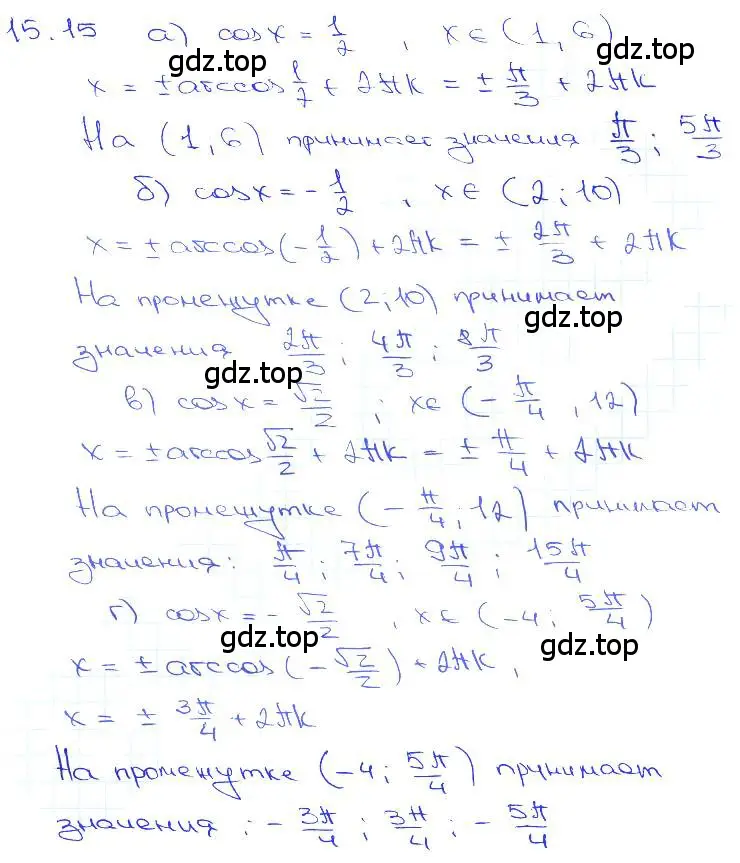 15.15 а) cosx = 1/2 , x∈(1,6)
gdz.top gdz.top
x = ±arccos 1/2 + 2πk = ± π/3 + 2πk
На (1,6) принимает значения π/3 ; 5π/3
б) cosx = -1/2 , x∈ (2;10)
x = ± arccos(-1/2) + 2πk = ± 2π/3 + 2πk
На промежутке (2;10) принимает
gdz.top
значения 2π/3 ; 4π/3 ; 8π/3
gdz.top
в) cosx = √2/2 ; x∈ (- π/4 , 12)
x = ±arccos √2/2 + 2πk = ± π/4 + 2πk
На промежутке (- π/4 ; 12) принимает
значения: π/4 ; 7π/4 ; 9π/4 ; 15π/4
г) cosx = - √2/2 , x∈ (-4; 5π/4)
gdz.top gdz.top
x = ± arccos(- √2/2) + 2πk ,
x = ± 3π/4 + 2πk
На промежутке (-4; 5π/4) принимает
значения : - 3π/4 ; 3π/4 ; - 5π/4